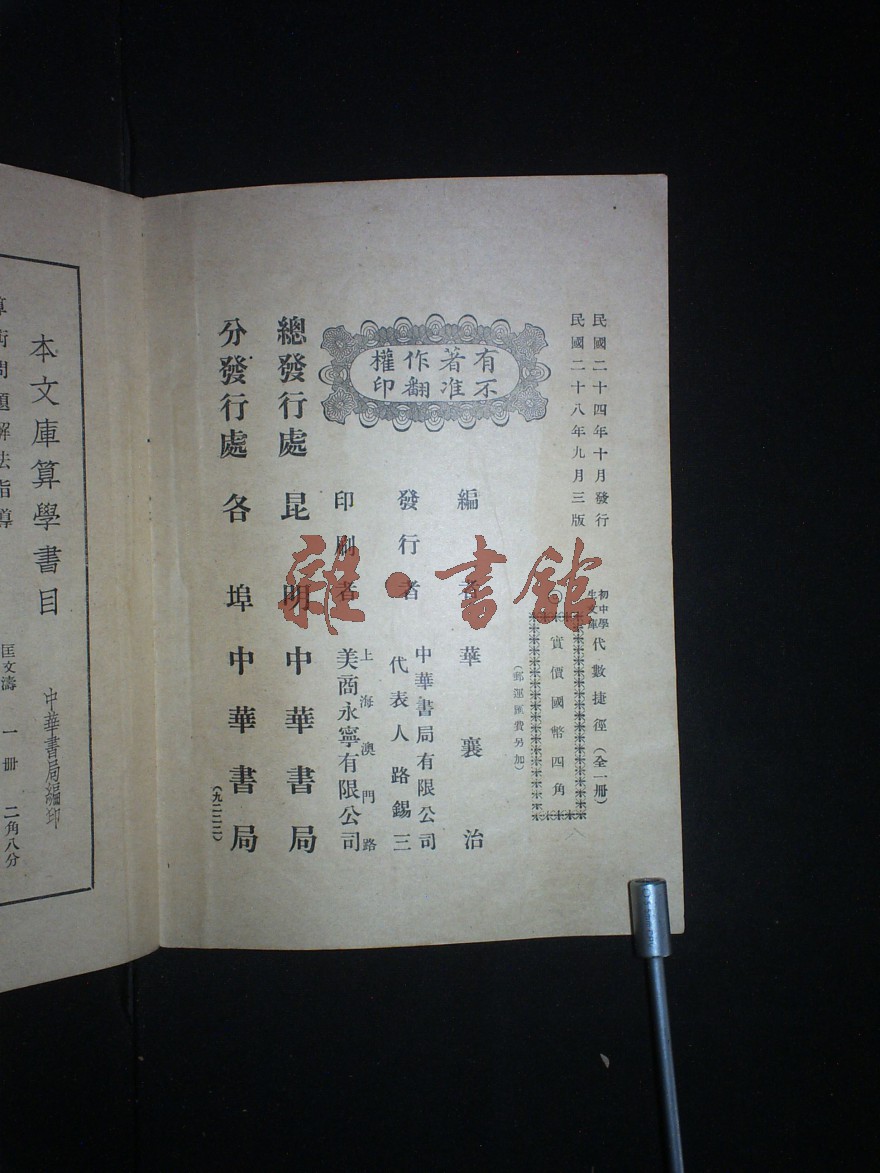 民國二十四年十月發行
民國二十八年九月三版
初中學生文庫 代數捷徑（全一册）
實價國幣四角
（郵運匯費另加）
有著作權
不准翻印
編者 華襄治
發行者 中華書局有限公司
代表人路錫三
印刷者 上海澳門路
美商永寧有限公司
總發行處 昆明中華書局
分發行處 各埠中華書局
（九二三二）
雜·書館
本文庫算學書目 中華書局編印
算術問題解法指導 匡文濤 一册 二角八分